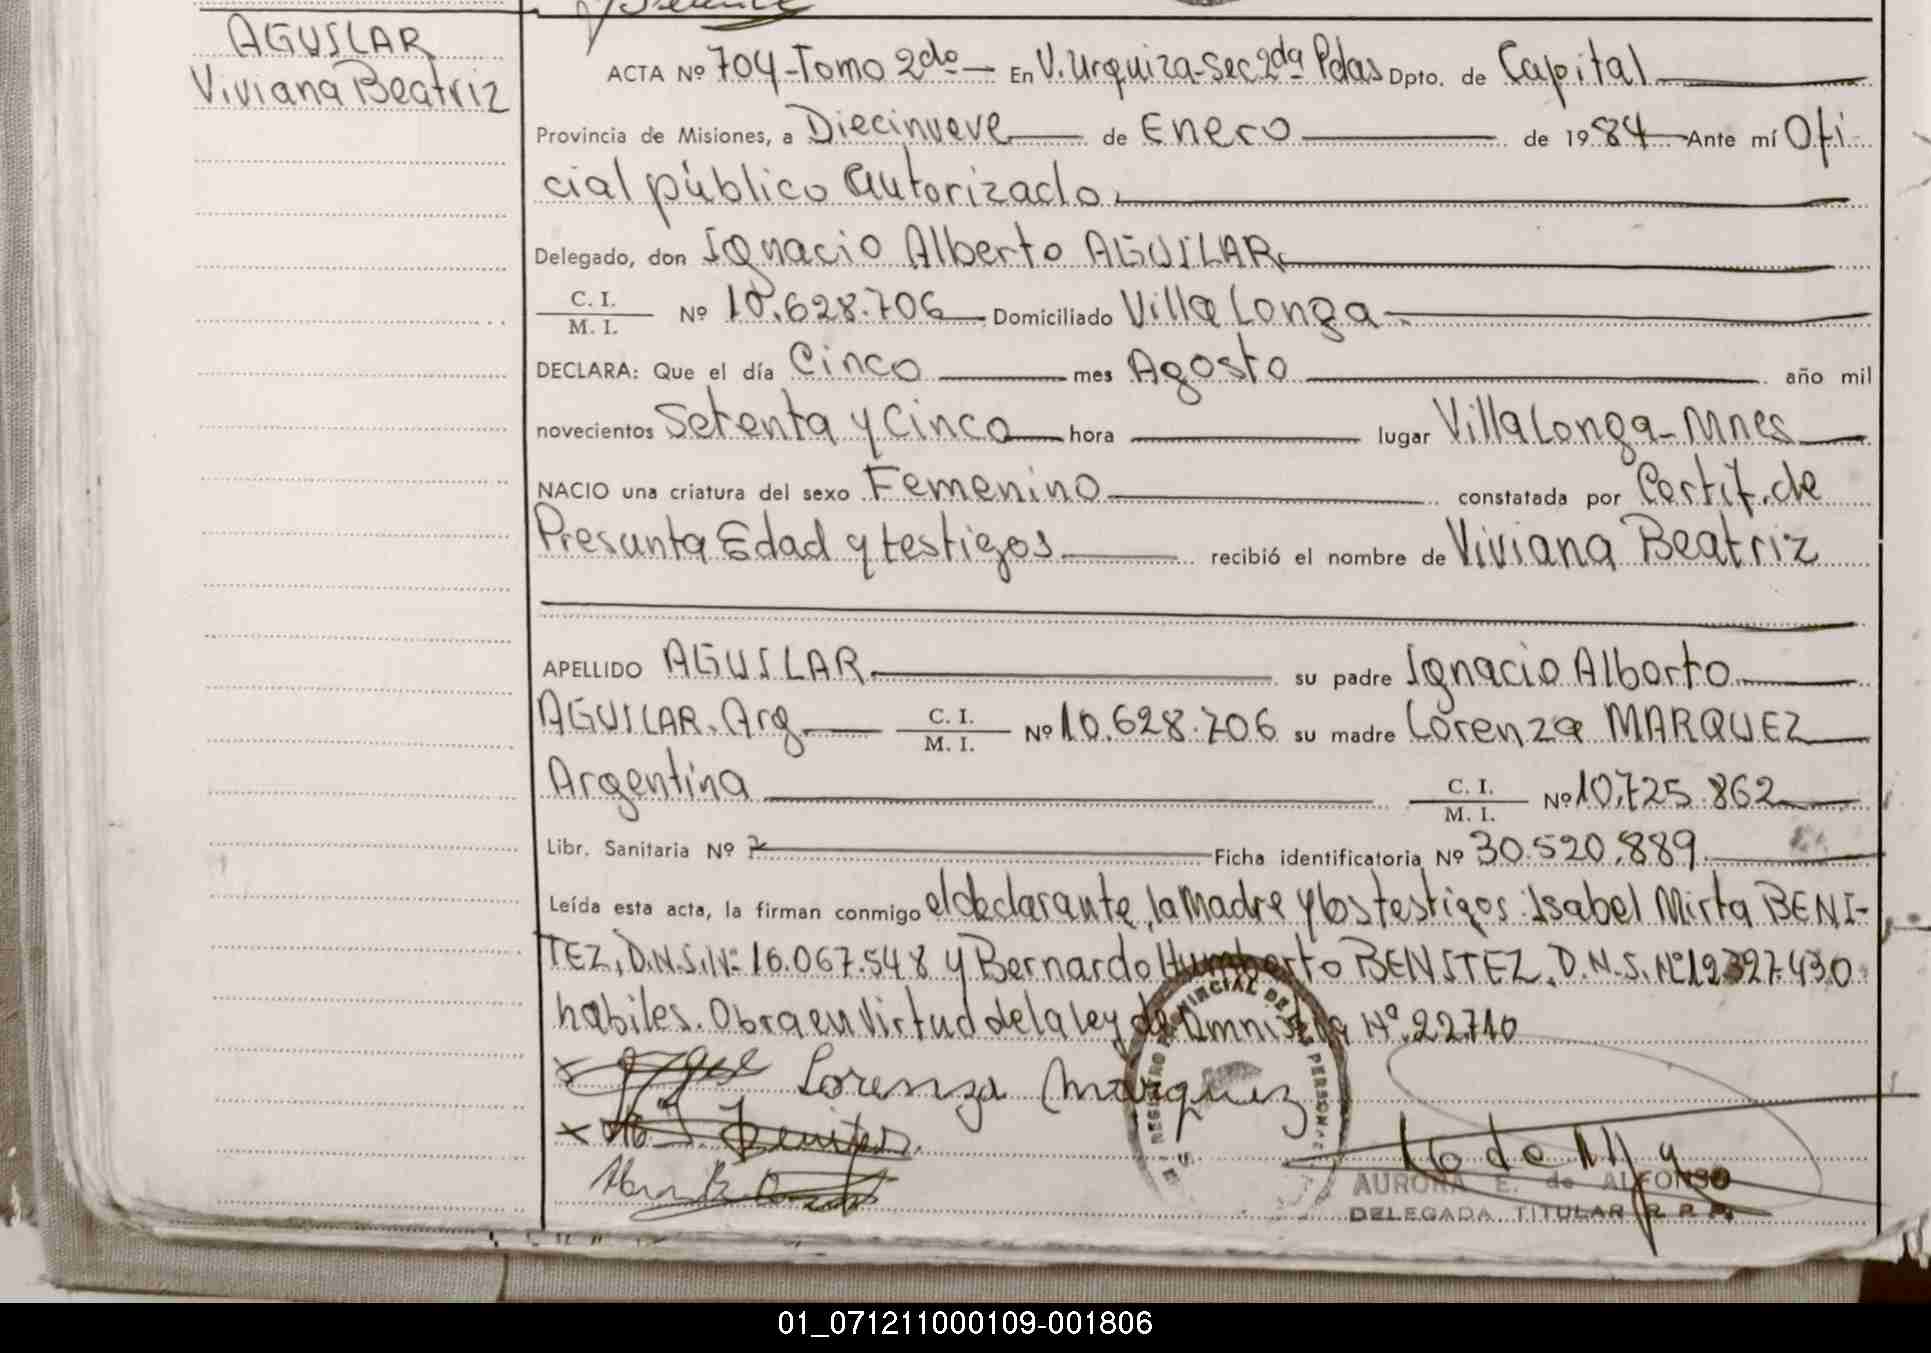 AGUILAR
Viviana Beatriz
ACTA Nº 704-Tomo 2do — En V. Urquiza-Sec 2da Pdas Dpto. de Capital
Provincia de Misiones, a Diecinueve de Enero de 1984 Ante mí Ofi
cial público autorizado.
Delegado, don Ignacio Alberto AGUILAR
C. I.
M. I. Nº 10.628.706 Domiciliado Villa Longa
DECLARA: Que el día Cinco mes Agosto año mil
novecientos Setenta y Cinco hora lugar Villa Longa-Mnes
NACIO una criatura del sexo Femenino constatada por Certif. de
Presunta Edad y testigos recibió el nombre de Viviana Beatriz
APELLIDO AGUILAR su padre Ignacio Alberto
AGUILAR. Arg C. I. M. I. Nº 10.628.706 su madre Lorenza MARQUEZ
Argentina C. I. M. I. Nº 10.725.862
Libr. Sanitaria Nº Ficha identificatoria Nº 30.520.889
Leída esta acta, la firman conmigo el declarante, la Madre y los testigos: Isabel Mirta BENI-
TEZ, D.N.I. Nº 16.067.548 y Bernardo Humberto BENITEZ, D.N.I. Nº 12.327.430
habiles. Obra en Virtud de la ley de Amnistia Nº 22.710
Lorenza Marquez
Benitez
REGISTRO PROVINCIAL DE LAS PERSONAS
AURORA E. de ALFONSO
DELEGADA TITULAR R. P. P.
01_071211000109-001806